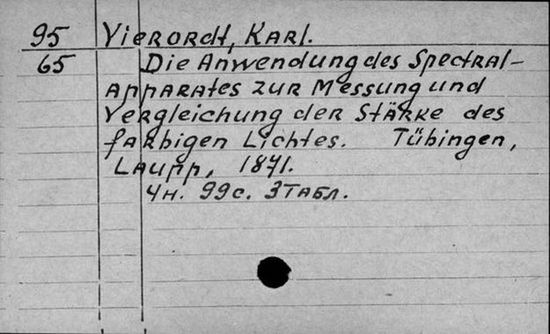 95 Vierordt, Karl.
65 Die Anwendung des Spectral-
Apparates zur Messung und
Vergleichung der Stärke des
farbigen Lichtes. Tübingen,
Laupp, 1871.
4н. 99с. 3табл.